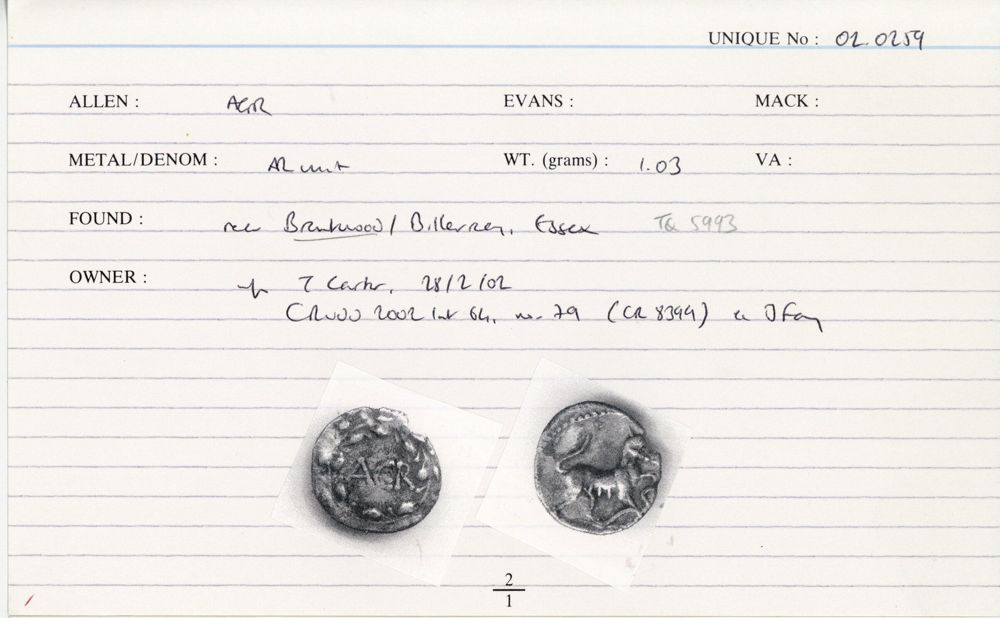 UNIQUE No : 02.0259
ALLEN : AGR EVANS : MACK :
METAL/DENOM : AR unit WT. (grams) : 1.03 VA :
FOUND : near Brentwood / Billericay, Essex TQ 5993
OWNER : T Carter, 28/2/02
2002 list 64, no. 79 (CR 8399)
AGR
2
1